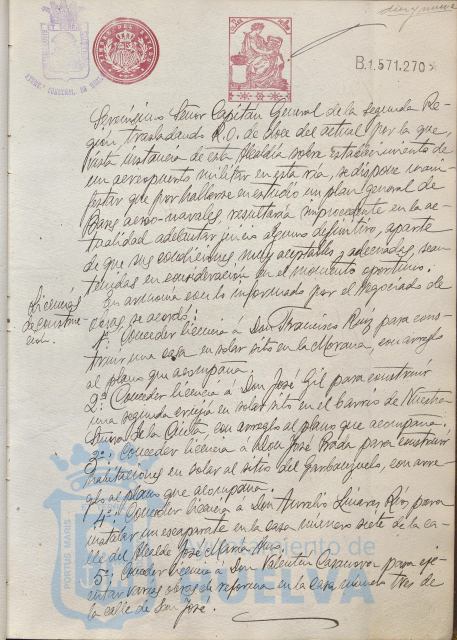 diez y nueve
TIMBRE DEL ESTADO
B.1.571.270
Serenísimo Señor Capitán General de la segunda Re-
gión, trasladando R.O. de doce del actual por la que,
vista instancia de esta Alcaldía sobre establecimiento de
un aereopuerto militar en esta ria, se dispone mani-
festar que por hallarse en estudio un plan general de
Bases aereo-navales, resultaría improcedente en la ac-
tualidad adelantar juicio alguno definitivo, aparte
de que sus condiciones, muy aceptables y adecuadas, sean
tenidas en consideración en el momento oportuno.
Licencias
de construc-
ción.
En armonía con lo informado por el Negociado de
obras, se acordó:
1º. Conceder licencia á Don Francisco Ruiz para cons-
truir una casa en solar sito en la Morana, con arreglo
al plano que acompaña.
2º. Conceder licencia á Don José Gil para construir
una segunda crujía en solar sito en el barrio de Nuestra
Señora de la Cinta con arreglo al plano que acompaña.
3º. Conceder licencia á Don José Rada para construir
habitaciones en solar al sitio del Garbanzuelo, con arre-
glo al plano que acompaña.
4º. Conceder licencia á Don Aurelio Linares Ruiz para
instalar un escaparate en la casa número siete de la ca-
lle del Alcalde José María
5º. Conceder licencia á Don Valentín para eje-
cutar varias obras de reforma en la casa número tres de
la calle de San José.
PORTUS MARIS
Ayuntamiento de
HUELVA